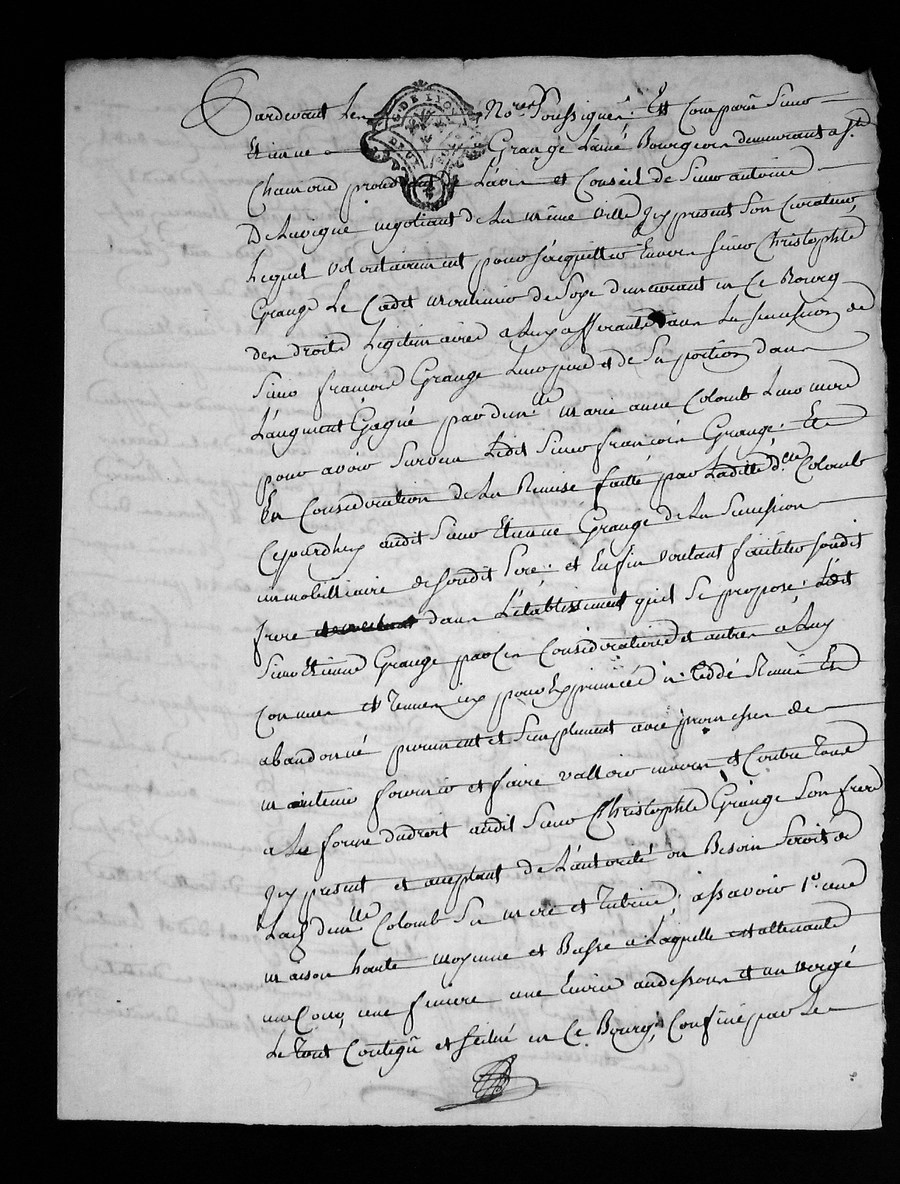 Pardevant Les No.res Soussignés. Est Comparu Sieur
Etienne Grange Lainé Bourgeois demeurant a St
Chamond L'avis et Conseil de Sieur antoine
Delavigne negotiant de La même ville icy present Son Curateur,
Lequel volontairement pour Envers Sieur Christophle
Grange Le Cadet moulinier de Soye demeurant en Ce Bourg
des droits Legitimaires a Luy afferants dans La succession de
Sieur françois Grange Leur pere et de Sa portion dans
L'augment Gagné par dem.lle marie anne Colomb Leur mere
pour avoir Survecu Ledit Sieur françois Grange. Et
En Consideration de La Remise faitte par Ladite d.lle Colomb
Cejourdhuy audit Sieur Etienne Grange de La Succession
immobilliaire desondit Pere. et Enfin voulant faciliter Sondit
frere dans L'établissement qu'il Se propose. Ledit
Sieur Etienne Grange par Ces Considerations et autres a Luy
Connues et Tenues icy pour Exprimées a Ceddé Remis Et
abandonné purement et Simplement avec promesses de
maintenir fournir et faire valloir envers et Contre Tous
a La forme du droit audit Sieur Christophle Grange Son frere
icy present et acceptant de L'autorité ou Besoin Seroit de
Lad. dem.lle Colomb Sa mere et Tutrice, assavoir 1.o une
maison haute moyenne et Basse a Laquelle est attenante
une Cour, une une Ecurie audessous et un vergé
Le Tout Contigû et Scitué en Ce Bourg, Confiné par Le
G. DE LYON